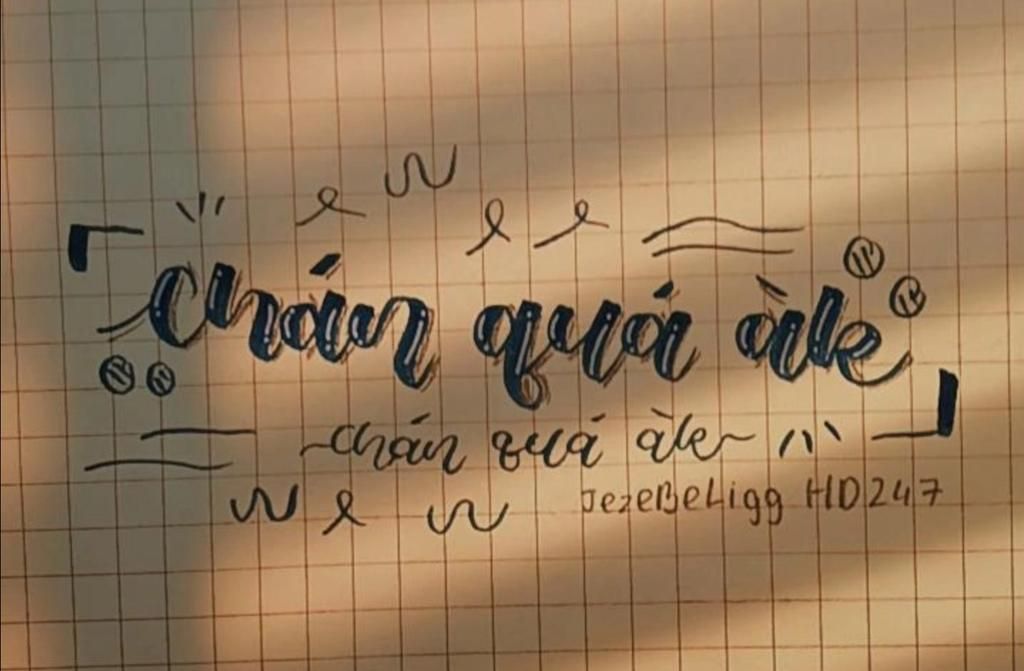 chán quá àle
~chán quá àle~
JezeBeLigg HD247